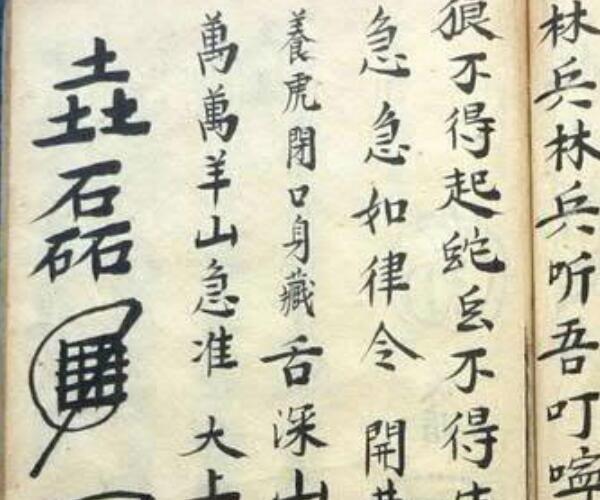 林兵林兵听吾叮嚀
狼不得起蛇䖝不得
急急如律令 開
養虎閉口身藏舌深山
萬萬羊山急准 大上
垚磊